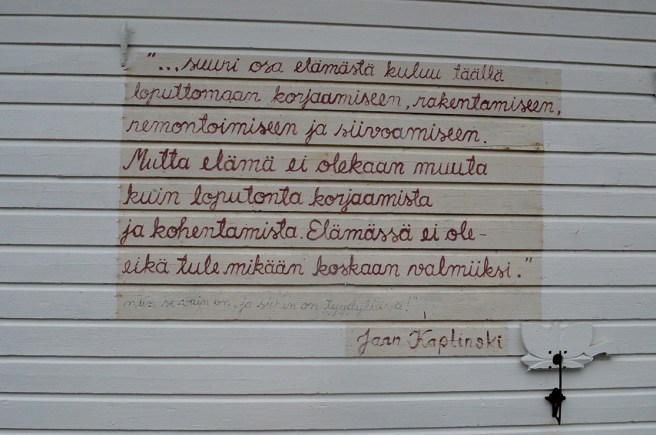 "...suuri osa elämästä kuluu täällä
loputtomaan korjaamiseen, rakentamiseen,
remontoimiseen ja siivoamiseen.
Mutta elämä ei olekaan muuta
kuin loputonta korjaamista
ja kohentamista. Elämässä ei ole-
eikä tule mikään koskaan valmiiksi."
se vain on, ja siihen on tyydyttävä!"
Jaan Kaplinski